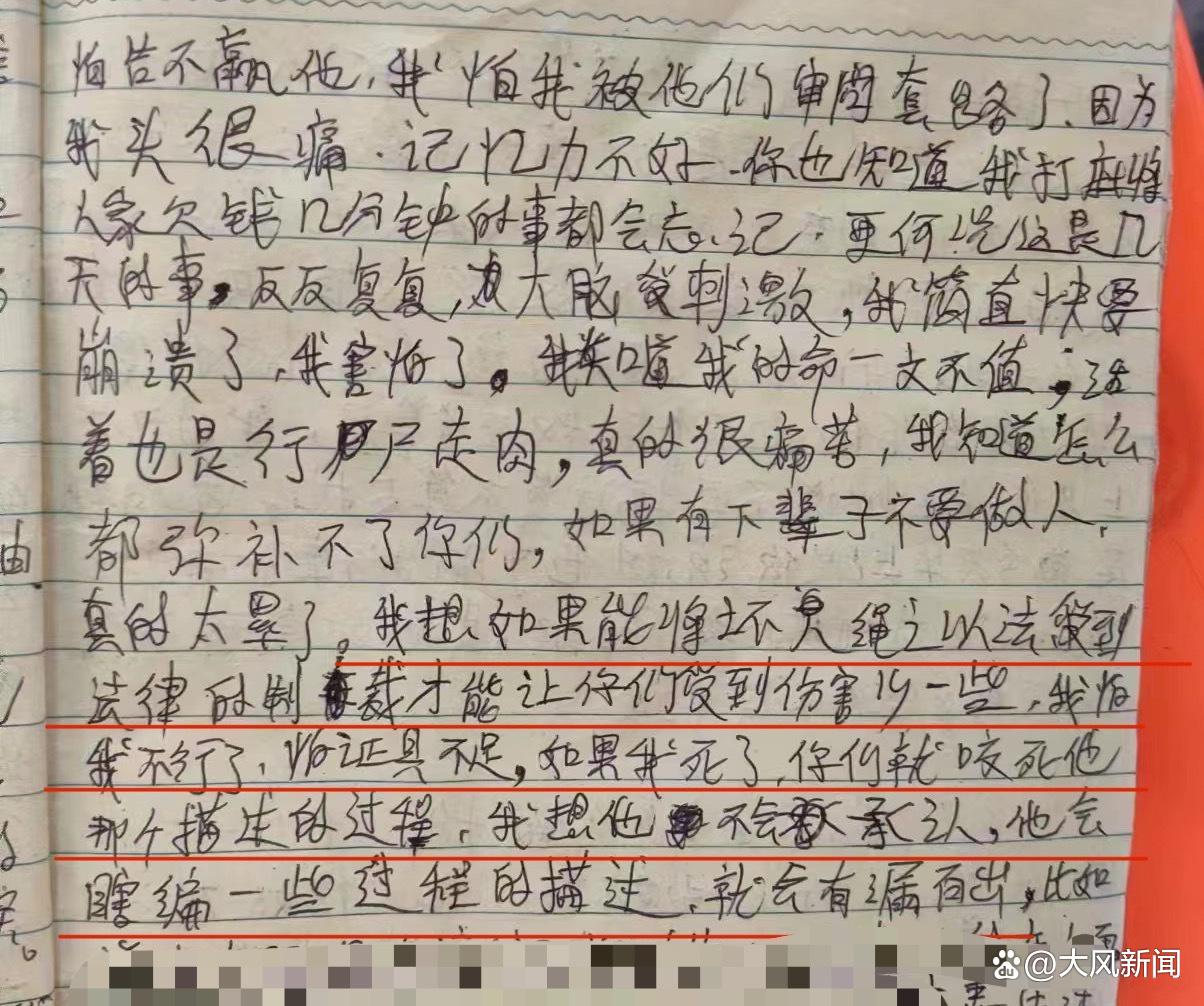 怕告不赢他，我怕我被他们审问套路了、因为
我头很痛．记忆力不好．你也知道我打麻将
人家欠钱几分钟的事都会忘记．更何况这是几
天的事，反反复复，大脑受刺激，我简直快要
崩溃了，我害怕了。我知道我的命一文不值，活
着也是行尸走肉，真的很痛苦，我知道怎么
都弥补不了你们，如果有下辈子不要做人，
真的太累了。我想如果能将坏人绳之以法受到
法律的制裁才能让你们受到伤害少一些，我怕
我不行了、怕证具不足，如果我死了，你们就咬死他
那个描述的过程，我想他不会承认，他会
瞎编一些过程的描述，就会有漏百出，比如
由
@大风新闻